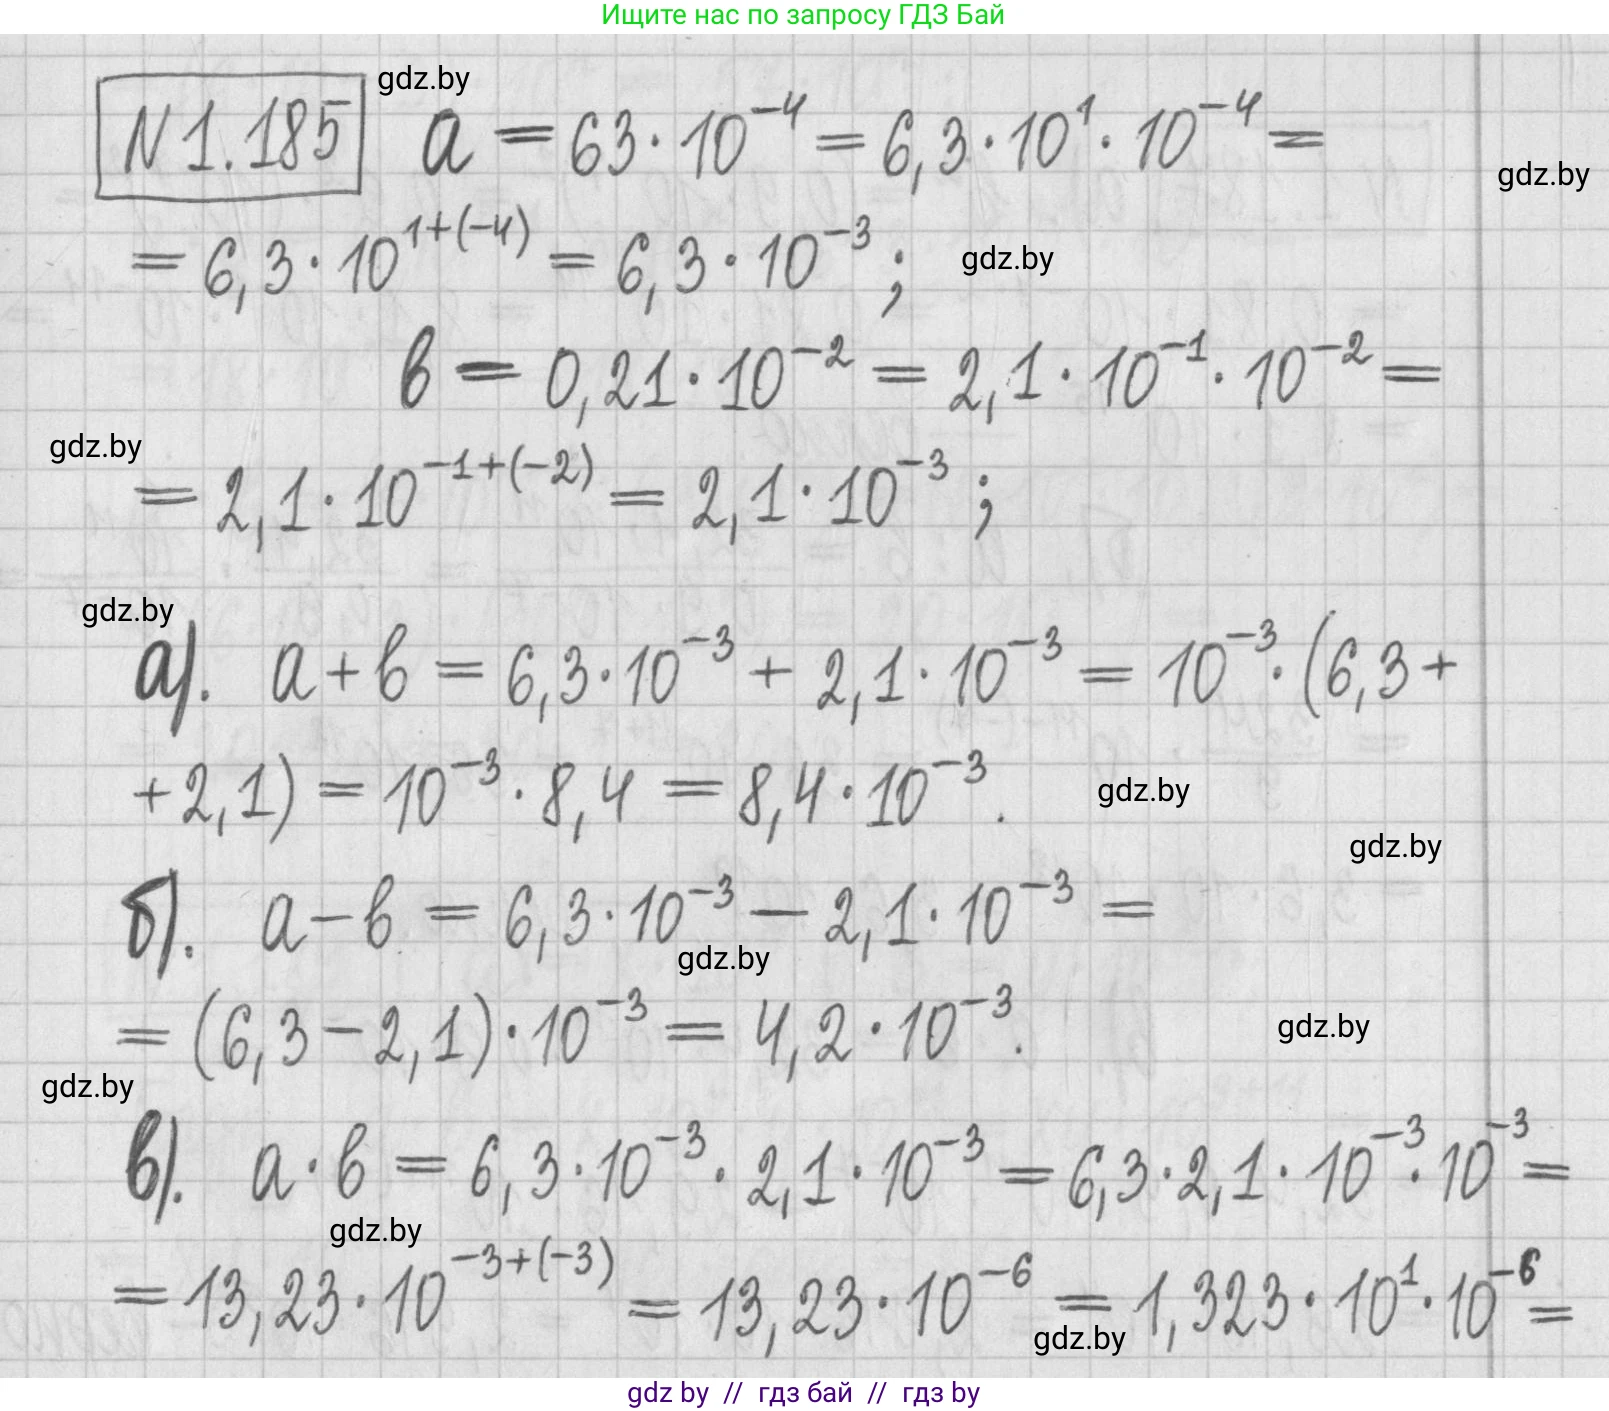 Ищите нас по запросу ГДЗ Бай
gdz.by
N 1.185 a = 63 · 10⁻⁴ = 6,3 · 10¹ · 10⁻⁴ =
gdz.by
= 6,3 · 10¹⁺⁽⁻⁴⁾ = 6,3 · 10⁻³ ;
gdz.by
в = 0,21 · 10⁻² = 2,1 · 10⁻¹ · 10⁻² =
gdz.by
= 2,1 · 10⁻¹⁺⁽⁻²⁾ = 2,1 · 10⁻³ ;
gdz.by
а). a + в = 6,3 · 10⁻³ + 2,1 · 10⁻³ = 10⁻³ · (6,3 +
+ 2,1) = 10⁻³ · 8,4 = 8,4 · 10⁻³.
gdz.by
gdz.by
б). a − в = 6,3 · 10⁻³ − 2,1 · 10⁻³ =
gdz.by
= (6,3 − 2,1) · 10⁻³ = 4,2 · 10⁻³.
gdz.by
gdz.by
в). a · в = 6,3 · 10⁻³ · 2,1 · 10⁻³ = 6,3 · 2,1 · 10⁻³ · 10⁻³ =
gdz.by
= 13,23 · 10⁻³⁺⁽⁻³⁾ = 13,23 · 10⁻⁶ = 1,323 · 10¹ · 10⁻⁶ =
gdz.by
gdz by // гдз бай // гдз by